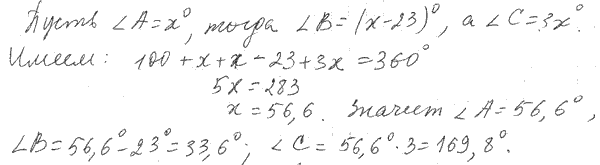 Пусть ∠A=x°, тогда ∠B=(x-23)°, а ∠C=3x°.
Имеем: 100+x+x-23+3x=360°
5x=283
x=56,6. Значит ∠A=56,6°,
∠B=56,6°-23°=33,6°; ∠C=56,6°·3=169,8°.